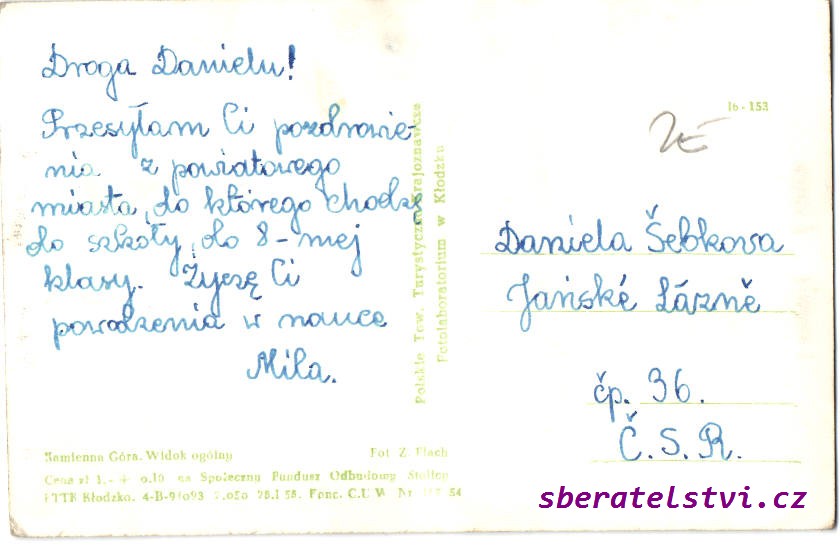 Droga Danielu!
Przesyłam Ci pozdrowie-
nia z powiatowego
miasta, do którego chodzę
do szkoły, do 8-mej
klasy. Życzę Ci
powodzenia w nauce
Mila.
Polskie Tow. Turystyczno-Krajoznawcze
Fotolaboratorium w Kłodzku
16-153
Daniela Šebkova
Jańské Lázně
čp. 36.
Č. S. R.
Kamienna Góra. Widok ogólny Fot Z. Płach
Cena zł 1.- + 0.10 na Społeczny Fundusz Odbudowy Stolicy
PTTK Kłodzko. 4-B-91093 28.I 58. C.U.W. Nr 54
sberatelstvi.cz